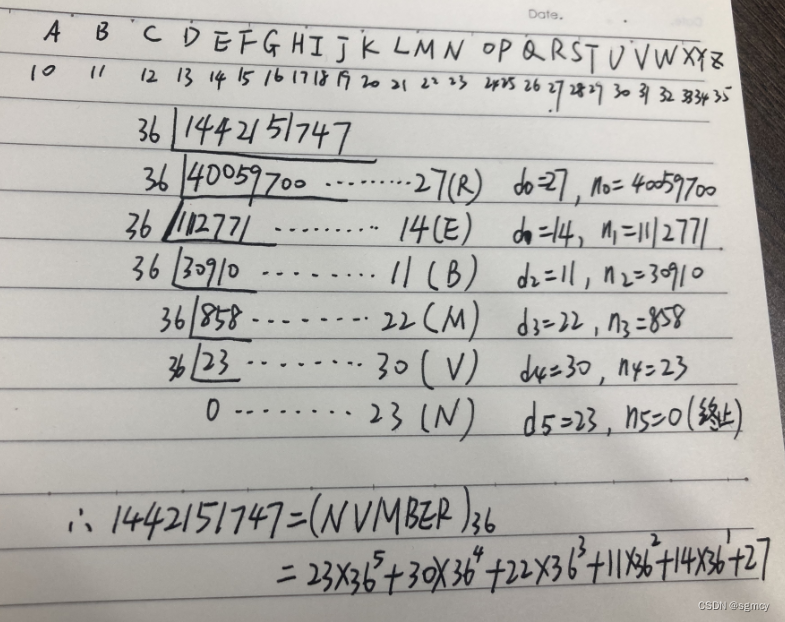 Date.
A B C D E F G H I J K L M N O P Q R S T U V W X Y Z
10 11 12 13 14 15 16 17 18 19 20 21 22 23 24 25 26 27 28 29 30 31 32 33 34 35
36 1442151747
36 40059700 ········· 27(R) d0=27, n0=40059700
36 1112771 ·········· 14(E) d1=14, n1=1112771
36 30910 ········ 11(B) d2=11, n2=30910
36 858 ········ 22(M) d3=22, n3=858
36 23 ········ 30(V) d4=30, n4=23
0 ········ 23(N) d5=23, n5=0(终止)
∴ 1442151747=(NVMBER)36
=23×36^5+30×36^4+22×36^3+11×36^2+14×36^1+27
CSDN @sgmcy